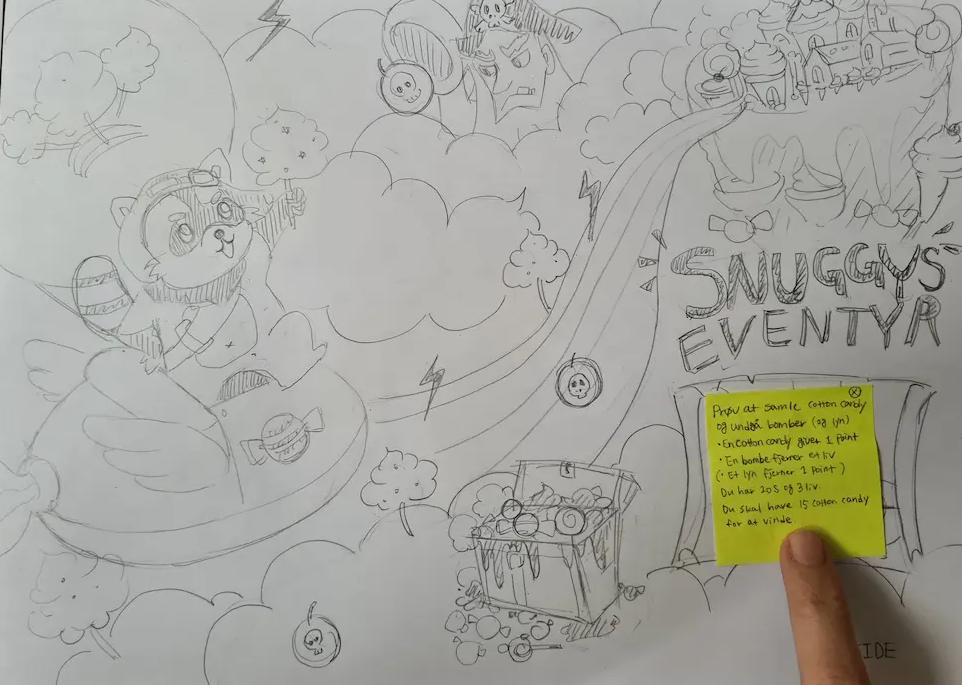 SNUGGYS
EVENTYR
Prøv at samle cotton candy
og undgå bomber (og lyn)
• En cotton candy giver 1 point
• En bombe fjerner et liv
(• Et lyn fjerner 1 point)
Du har 20 s og 3 liv.
Du skal have 15 cotton candy
for at vinde.
IDE